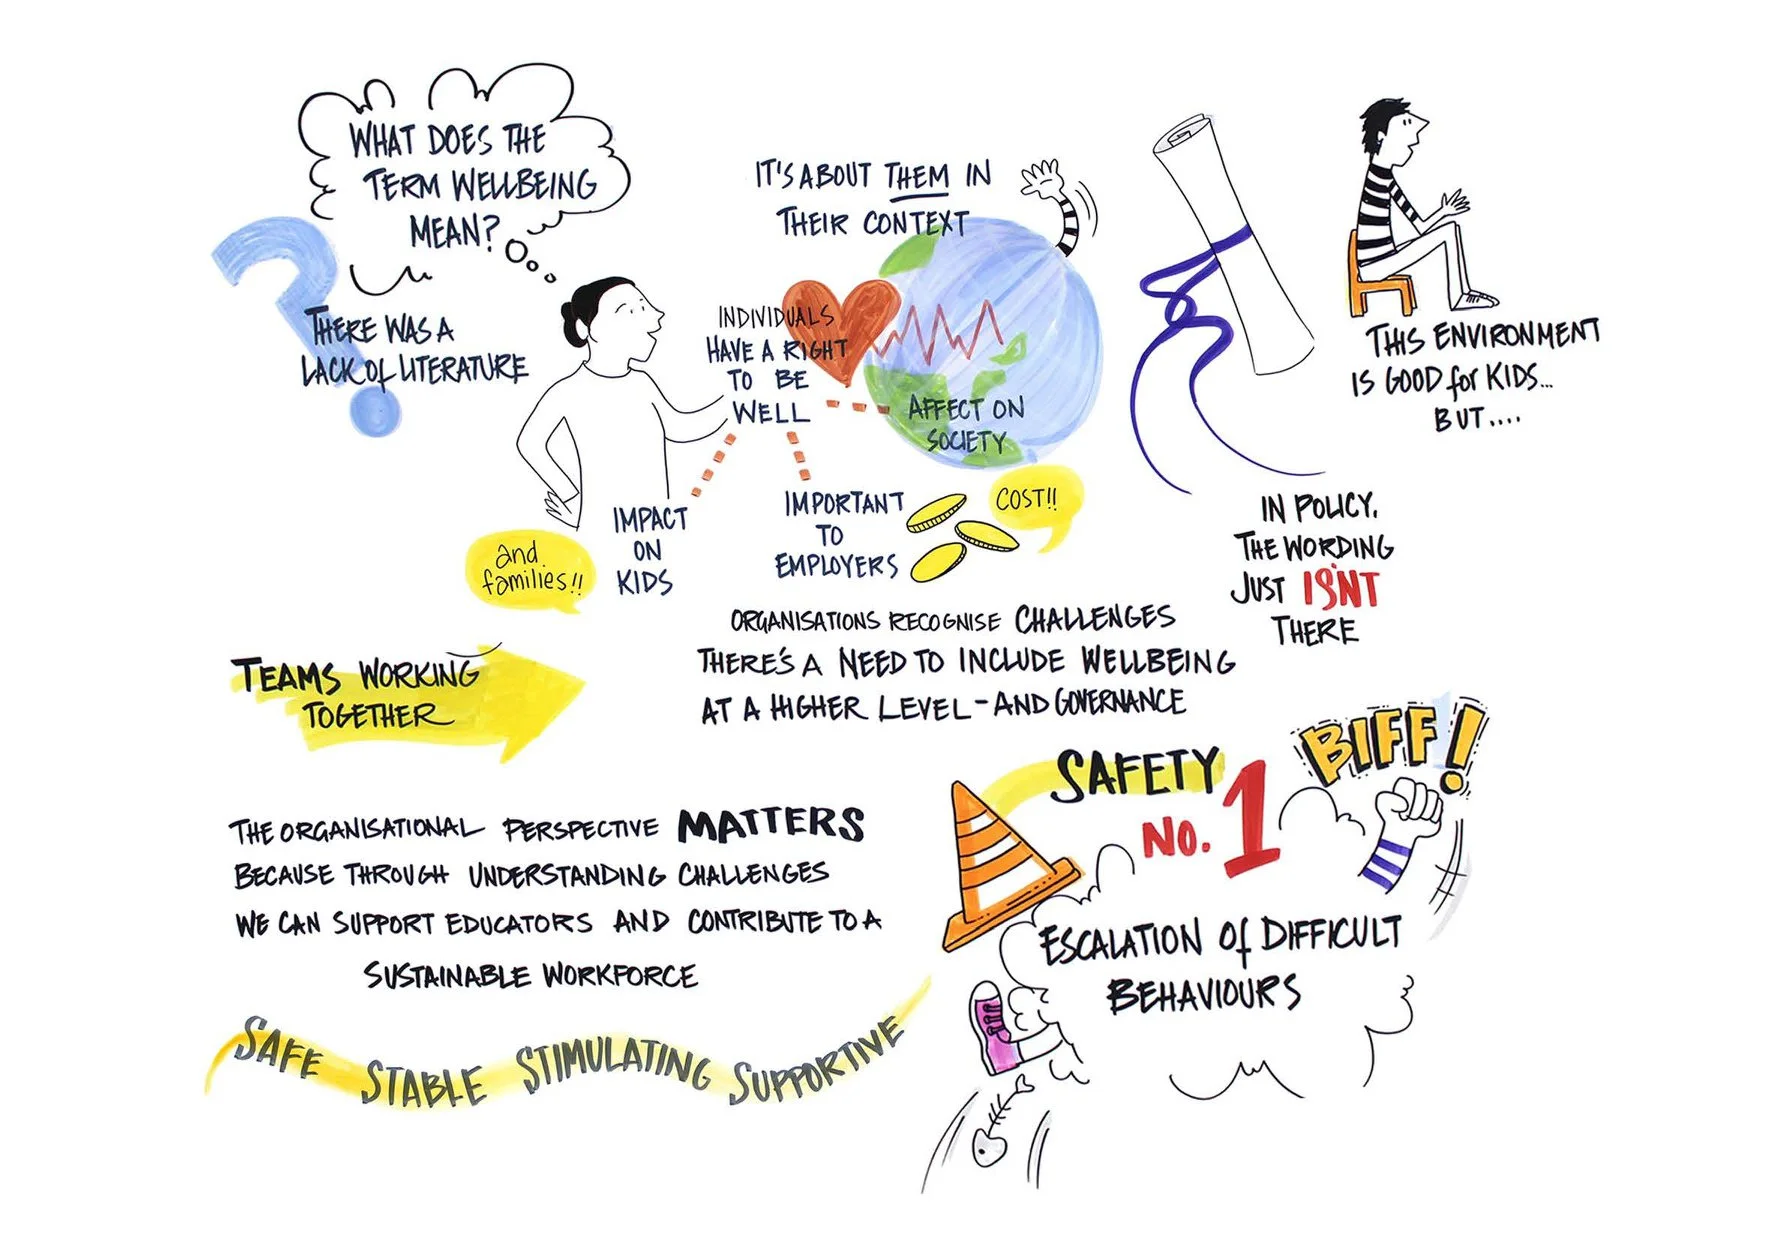 WHAT DOES THE
TERM WELLBEING
MEAN?
THERE WAS A
LACK OF LITERATURE
IT'S ABOUT THEM IN
THEIR CONTEXT
INDIVIDUALS
HAVE A RIGHT
TO BE
WELL
AFFECT ON
SOCIETY
IMPACT
ON
KIDS
and
families!!
IMPORTANT
TO
EMPLOYERS
COST!!
THIS ENVIRONMENT
IS GOOD for KIDS...
BUT....
IN POLICY,
THE WORDING
JUST ISN'T
THERE
ORGANISATIONS RECOGNISE CHALLENGES
THERE'S A NEED TO INCLUDE WELLBEING
AT A HIGHER LEVEL - AND GOVERNANCE
TEAMS WORKING
TOGETHER
THE ORGANISATIONAL PERSPECTIVE MATTERS
BECAUSE THROUGH UNDERSTANDING CHALLENGES
WE CAN SUPPORT EDUCATORS AND CONTRIBUTE TO A
SUSTAINABLE WORKFORCE
SAFE STABLE STIMULATING SUPPORTIVE
SAFETY
NO. 1
BIFF!
ESCALATION Of DIFFICULT
BEHAVIOURS